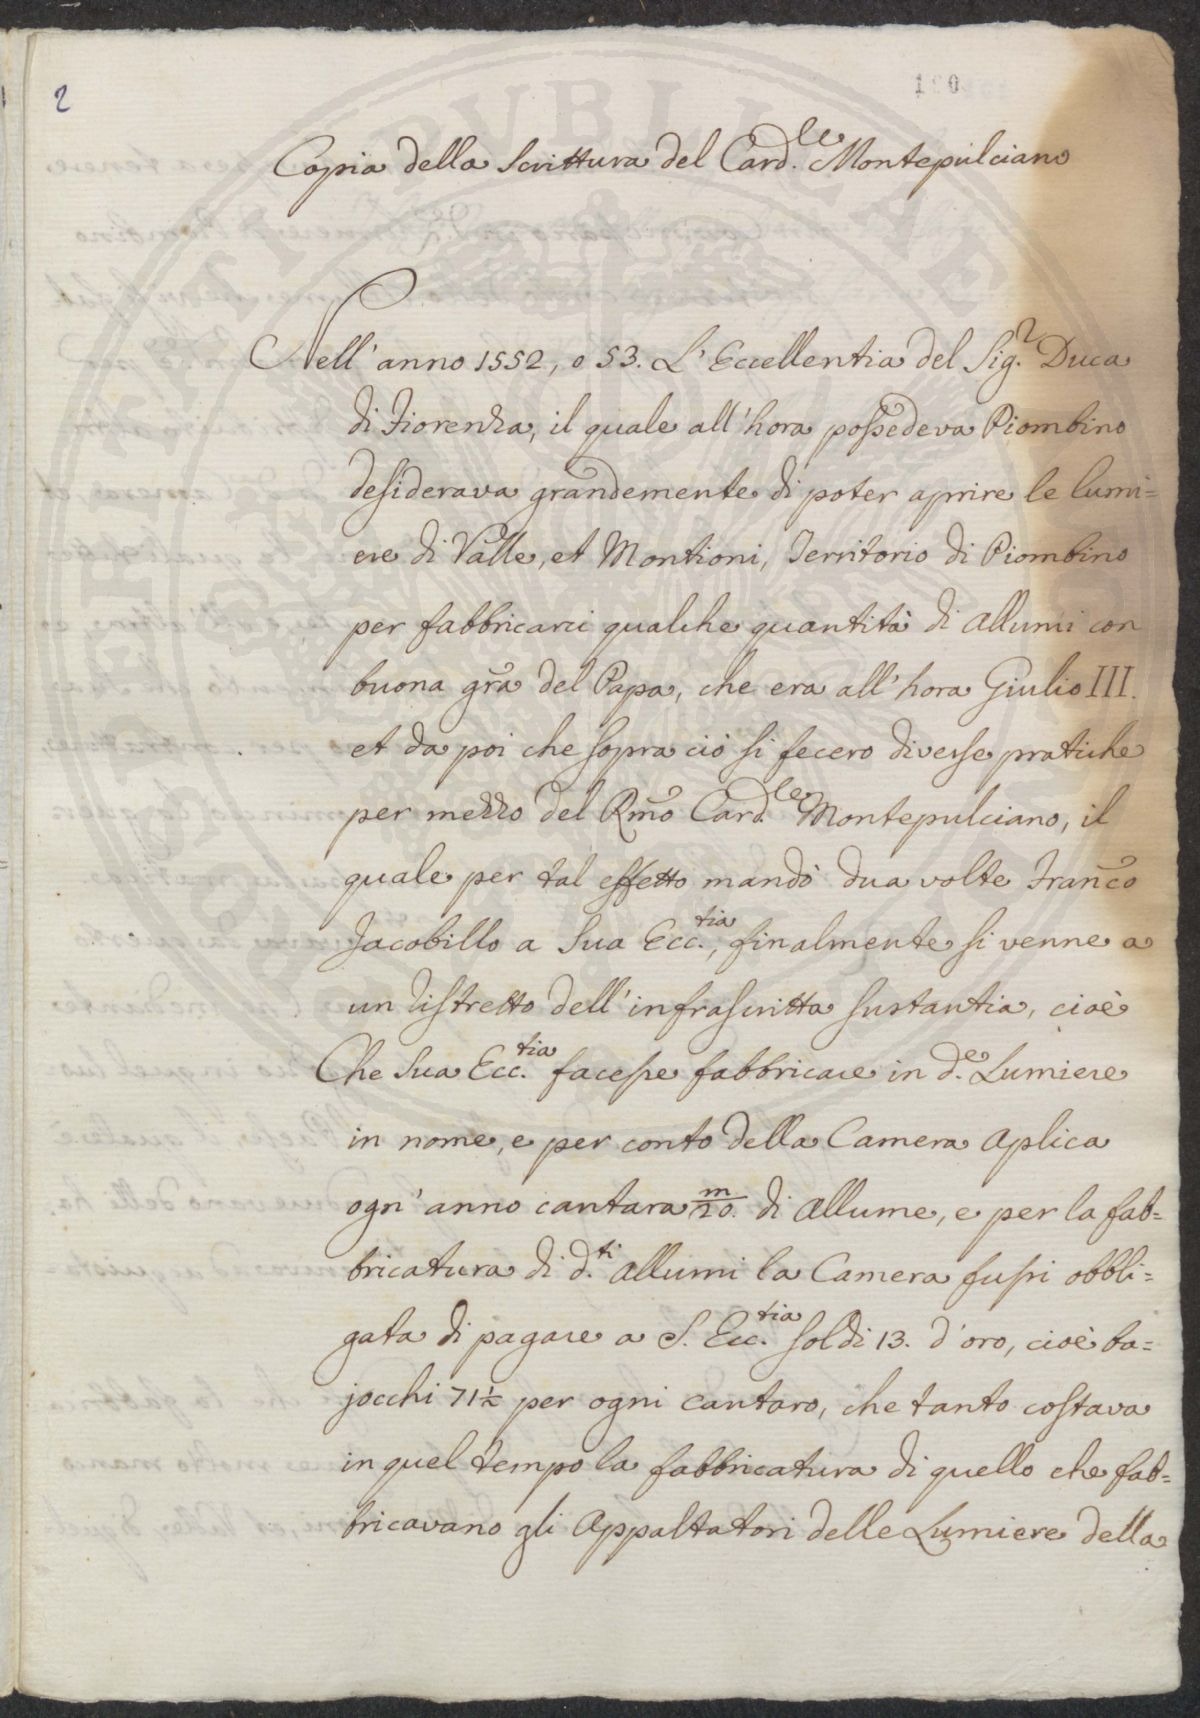 2
190
Copia della Scrittura del Card.le Montepulciano
Nell'anno 1552, o 53. L'Eccellentia del Sig.r Duca
di Fiorenza, il quale all'hora possedeva Piombino
desiderava grandemente di poter aprire le lumi=
ere di Valle, et Montioni, Territorio di Piombino
per fabbricarci qualche quantità di Allumi con
buona grã del Papa, che era all'hora Giulio III.
et da poi che sopra ciò si fecero diverse pratiche
per mezzo del Rmõ Card.le Montepulciano, il
quale per tal effetto mandò dua volte Franc̃o
Jacobillo a Sua Ecc.tia, finalmente si venne a
un ristretto dell'infrascritta sustantia, cioè
Che Sua Ecc.tia facesse fabbricare in d.e Lumiere
in nome, e per conto della Camera Aplica
ogn'anno cantara m/20. di Allume, e per la fab=
bricatura di d.ti Allumi la Camera fussi obbli=
gata di pagare a S. Ecc.tia soldi 13. d'oro, cioè ba=
jocchi 71½ per ogni cantaro, che tanto costava
in quel tempo la fabbricatura di quello che fab=
bricavano gli Appaltatori delle Lumiere della